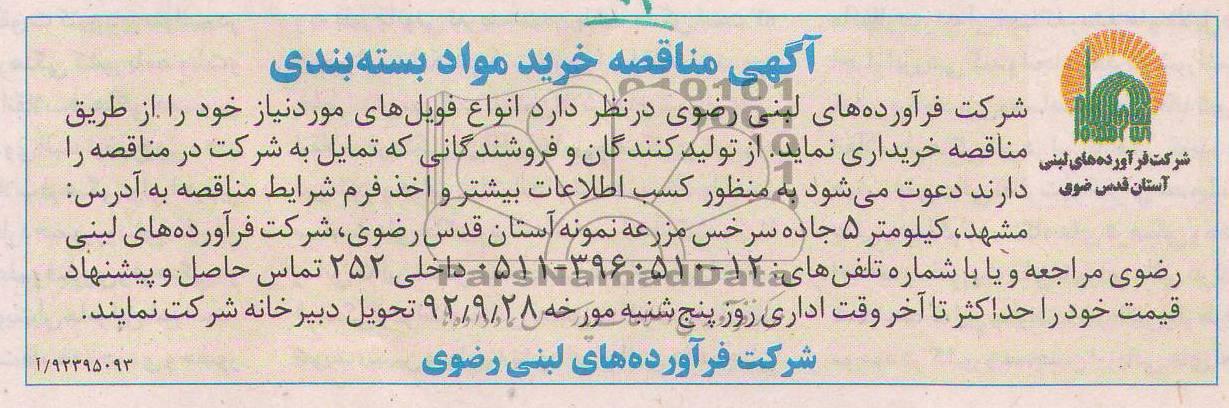 آگهی مناقصه خرید مواد بسته‌بندی
شرکت فرآورده‌های لبنی رضوی درنظر دارد انواع فویل‌های موردنیاز خود را از طریق
مناقصه خریداری نماید. از تولیدکنندگان و فروشندگانی که تمایل به شرکت در مناقصه را
دارند دعوت می‌شود به منظور کسب اطلاعات بیشتر و اخذ فرم شرایط مناقصه به آدرس:
مشهد، کیلومتر ۵ جاده سرخس مزرعه نمونه آستان قدس رضوی، شرکت فرآورده‌های لبنی
رضوی مراجعه و یا با شماره تلفن‌های ۱۲-۳۹۶۰۵۱۰-۰۵۱۱ داخلی ۲۵۲ تماس حاصل و پیشنهاد
قیمت خود را حداکثر تا آخر وقت اداری روز پنج‌شنبه مورخه ۹۲/۹/۲۸ تحویل دبیرخانه شرکت نمایند.
شرکت فرآورده‌های لبنی رضوی
۹۲۳۹۵۰۹۳/آ
شرکت فرآورده‌های لبنی
آستان قدس رضوی
ParsNamadData